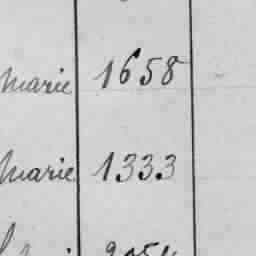 Marie 1658
Marie 1333